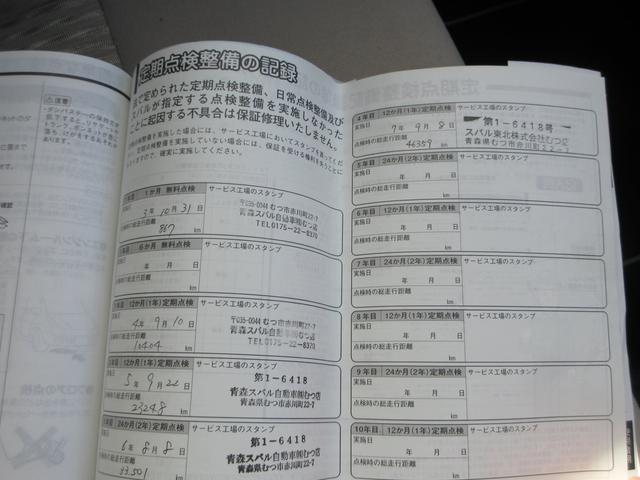 定期点検整備の記録
法で定められた定期点検整備、日常点検整備及び
スバルが指定する点検整備を実施しなかった
ことに起因する不具合は保証修理いたしません。
1か月 無料点検
サービス工場のスタンプ
3年10月31日
867
km
〒035-0044 むつ市赤川町22-7
青森スバル自動車㈱むつ店
TEL0175-22-8370
6か月 無料点検
サービス工場のスタンプ
年 月 日
点検時の総走行距離
km
12か月(1年)定期点検
サービス工場のスタンプ
4年9月10日
10404
km
〒035-0044 むつ市赤川町22-7
青森スバル自動車㈱むつ店
TEL0175-22-8370
12か月(1年)定期点検
サービス工場のスタンプ
5年9月22日
23248
km
第1-6418
青森スバル自動車㈱むつ店
青森県むつ市赤川町22-7
24か月(2年)定期点検
サービス工場のスタンプ
6年8月8日
33,501
第1-6418
青森スバル自動車㈱むつ店
青森県むつ市赤川町22-7
4年目 12か月(1年)定期点検
サービス工場のスタンプ
実施日
7年9月8日
点検時の総走行距離
46359 km
第1-6418号
スバル東北株式会社むつ店
青森県むつ市赤川町22-7
5年目 24か月(2年)定期点検
サービス工場のスタンプ
実施日
年 月 日
点検時の総走行距離
km
6年目 12か月(1年)定期点検
サービス工場のスタンプ
実施日
年 月 日
点検時の総走行距離
km
7年目 24か月(2年)定期点検
サービス工場のスタンプ
実施日
年 月 日
点検時の総走行距離
km
8年目 12か月(1年)定期点検
サービス工場のスタンプ
実施日
年 月 日
点検時の総走行距離
km
9年目 24か月(2年)定期点検
サービス工場のスタンプ
実施日
年 月 日
点検時の総走行距離
km
10年目 12か月(1年)定期点検
サービス工場のスタンプ
実施日
年 月 日
点検時の総走行距離
km